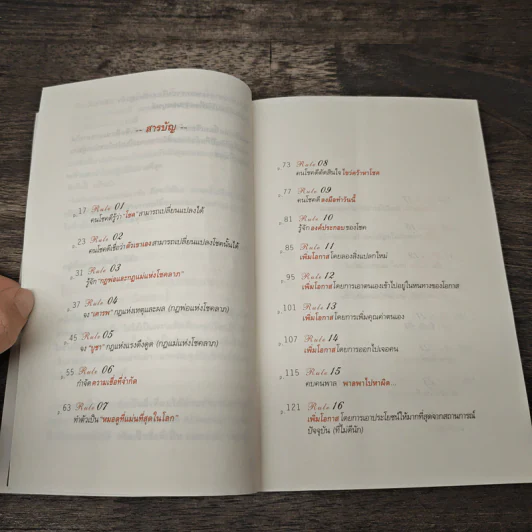 — สารบัญ —
p.17 Rule 01
คนโชคดีรู้ว่า "โชค" สามารถเปลี่ยนแปลงได้
p.23 Rule 02
คนโชคดีเชื่อว่าตัวเขาเองสามารถเปลี่ยนแปลงโชคนั้นได้
p.31 Rule 03
รู้จัก "กฎพ่อและกฎแม่แห่งโชคลาภ"
p.37 Rule 04
จง "เคารพ" กฎแห่งเหตุและผล (กฎพ่อแห่งโชคลาภ)
p.45 Rule 05
จง "บูชา" กฎแห่งแรงดึงดูด (กฎแม่แห่งโชคลาภ)
p.55 Rule 06
กำจัดความเชื่อที่จำกัด
p.63 Rule 07
ทำตัวเป็น "หมอดูที่แม่นที่สุดในโลก"
p.73 Rule 08
คนโชคดีตัดสินใจ ไขว่คว้าหาโชค
p.77 Rule 09
คนโชคดี ลงมือทำวันนี้
p.81 Rule 10
รู้จัก องค์ประกอบ ของโชค
p.85 Rule 11
เพิ่มโอกาส โดยลองสิ่งแปลกใหม่
p.95 Rule 12
เพิ่มโอกาส โดยการเอาตนเองเข้าไปอยู่ในหนทางของโอกาส
p.101 Rule 13
เพิ่มโอกาส โดยการเพิ่มคุณค่าตนเอง
p.107 Rule 14
เพิ่มโอกาส โดยการออกไปเจอคน
p.115 Rule 15
คบคนพาล พาลพาไปหาผิด...
p.121 Rule 16
เพิ่มโอกาส โดยการเอาประโยชน์ให้มากที่สุดจากสถานการณ์
ปัจจุบัน (ที่ไม่ดีนัก)